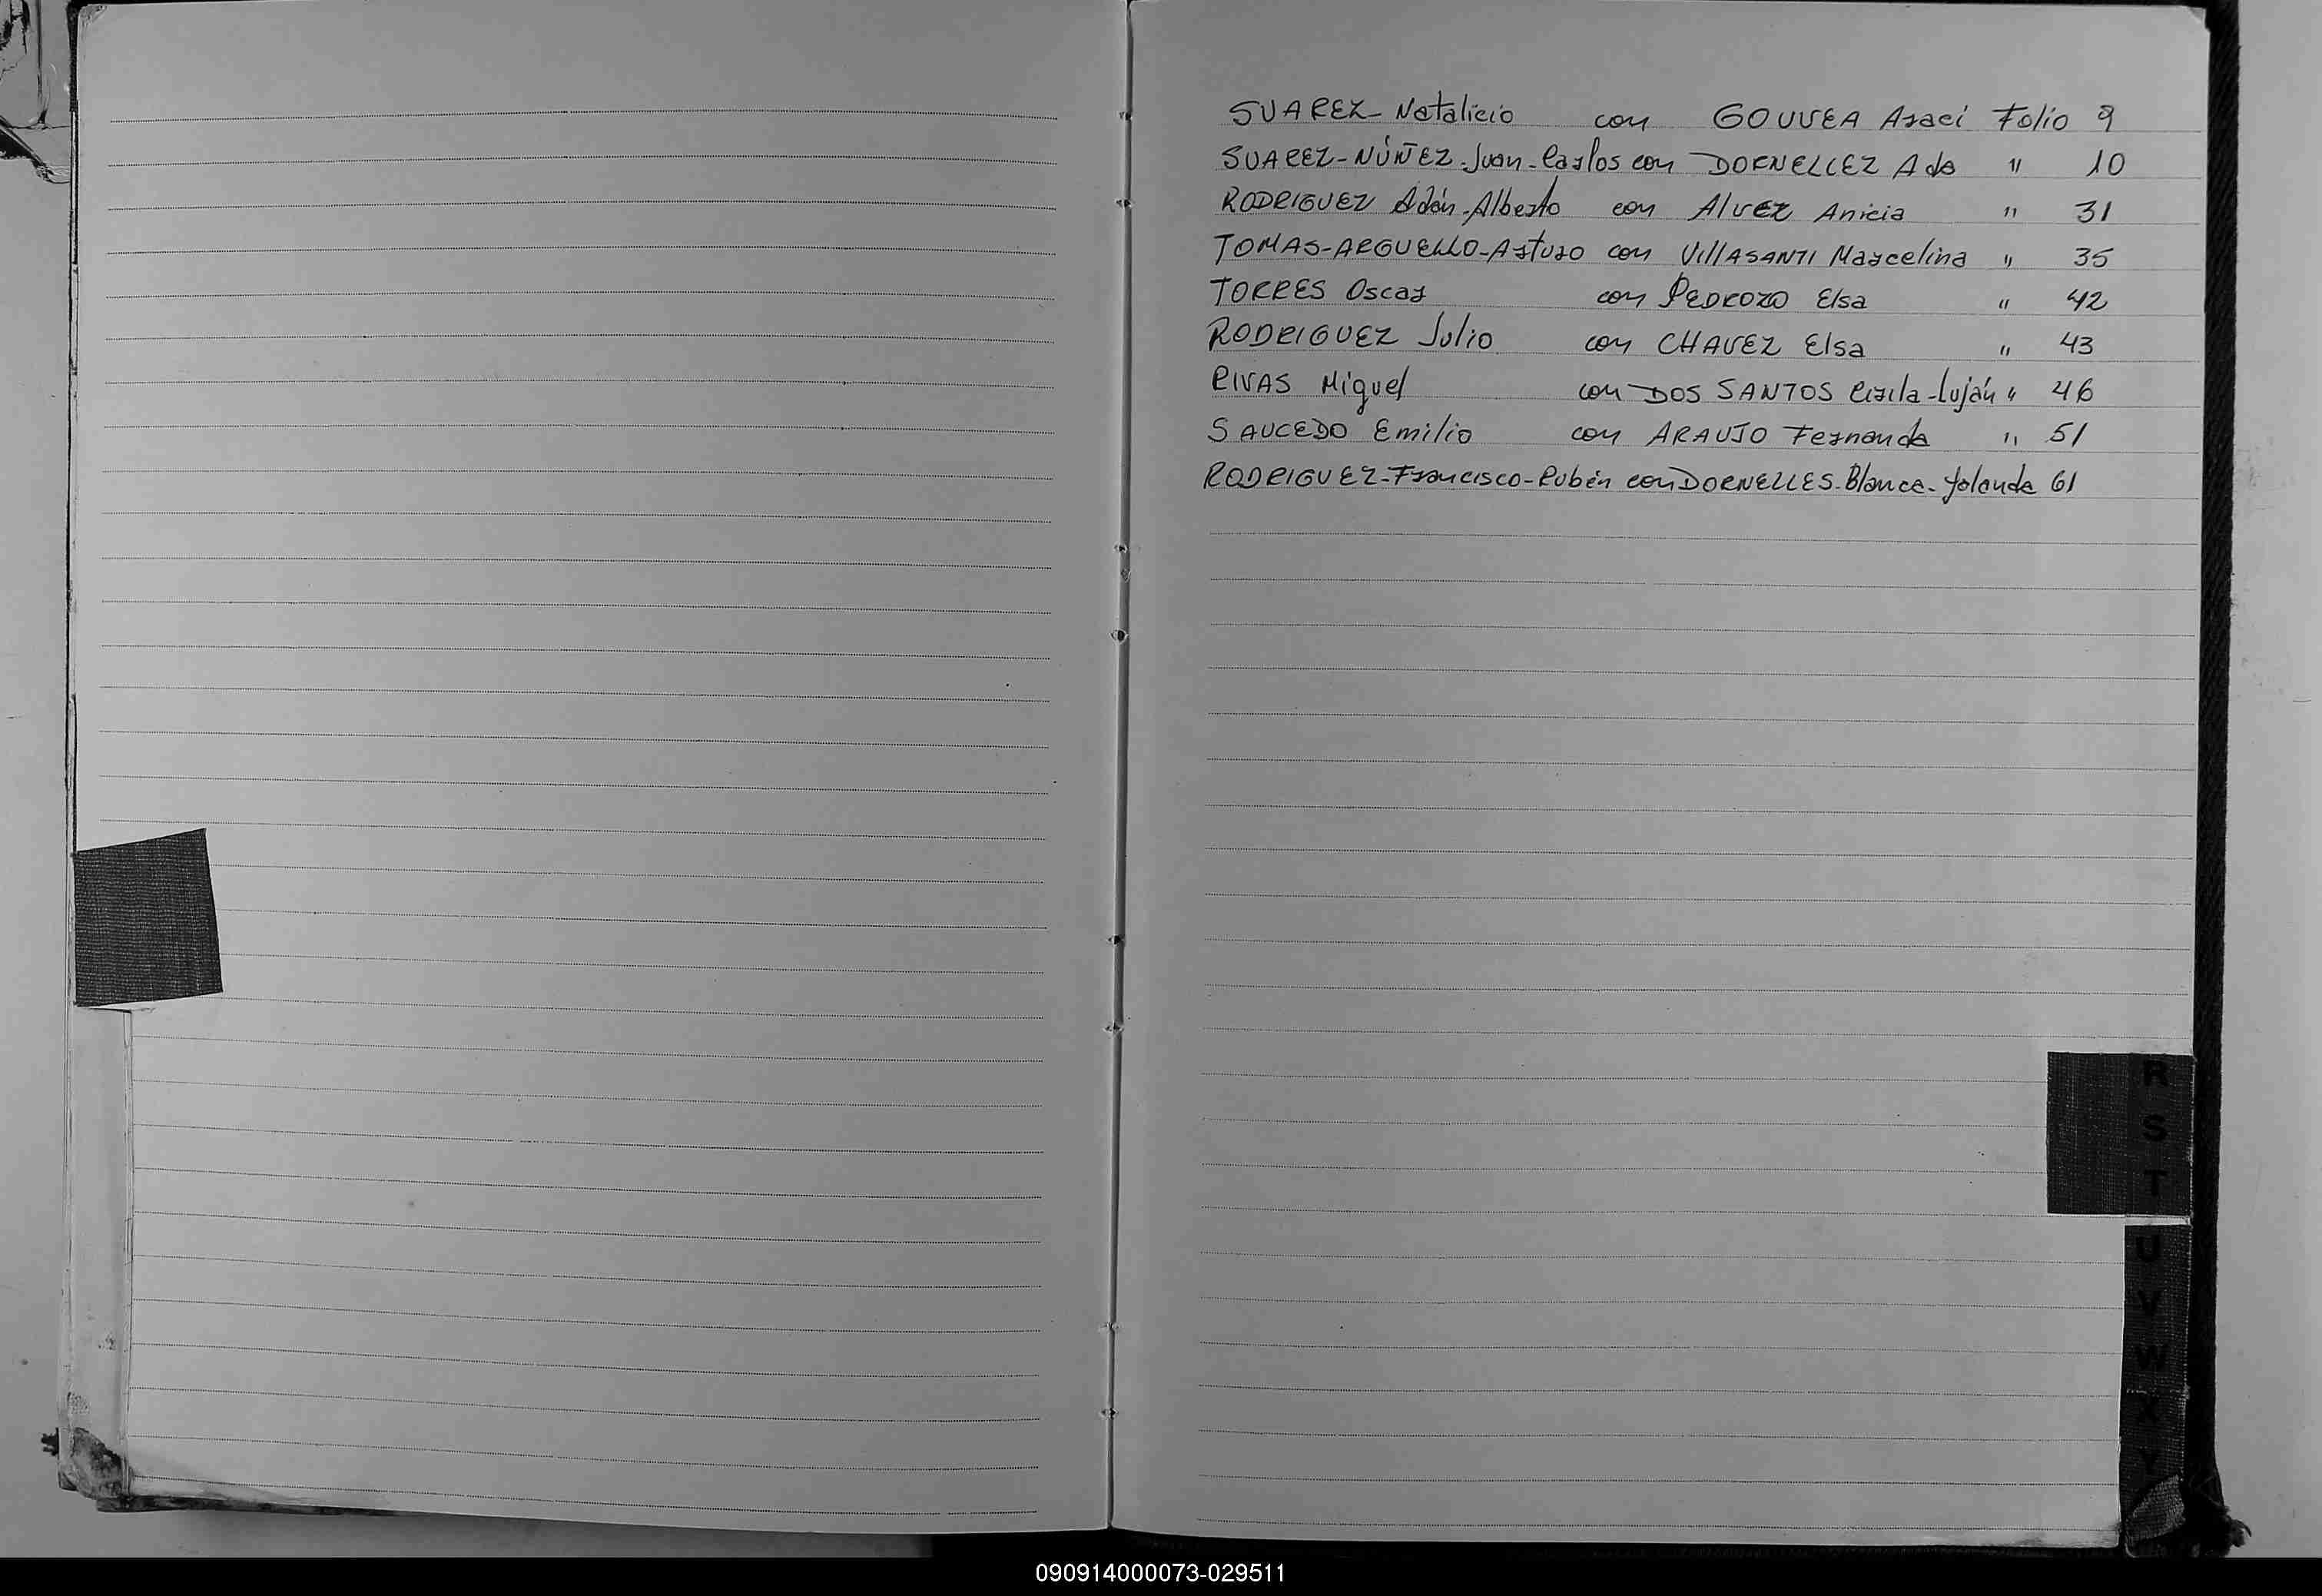 SUAREZ- Natalicio con GOUVEA Araci Folio 9
SUAREZ-NÚÑEZ-Juan-Carlos con DORNELLEZ Ada " 10
RODRIGUEZ Adán-Alberto con Alvez Anicia " 31
TOMAS-ARGUELLO-Arturo con VillASANTI Marcelina " 35
TORRES Oscar con PEDROZO Elsa " 42
RODRIGUEZ Julio con CHAVEZ Elsa " 43
RIVAS Miguel con DOS SANTOS Cirila-Luján " 46
SAUCEDO Emilio con ARAUJO Fernanda " 51
RODRIGUEZ-Francisco-Rubén con DORNELLES-Blanca-Yolanda 61
R
S
T
U
V
W
X
Y
090914000073-029511